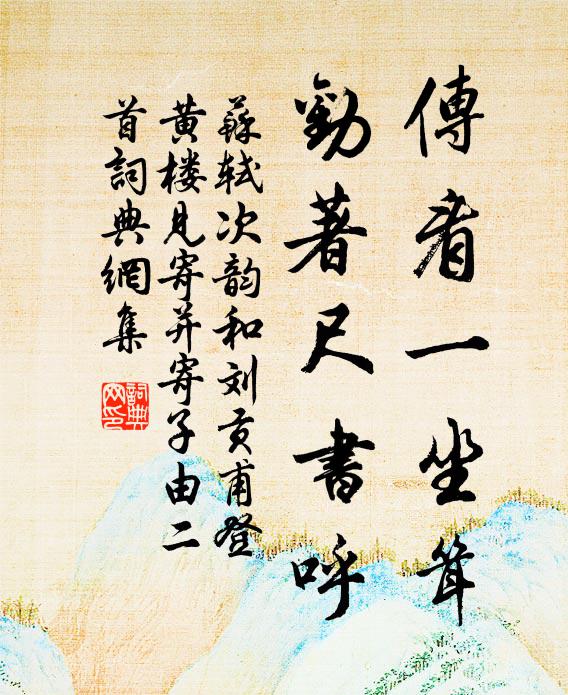 傳看一坐聳
勸著尺書呼
蘇軾次韵和刘贡甫登
黄楼見寄并寄子由二
首詞典網集
詞典网印